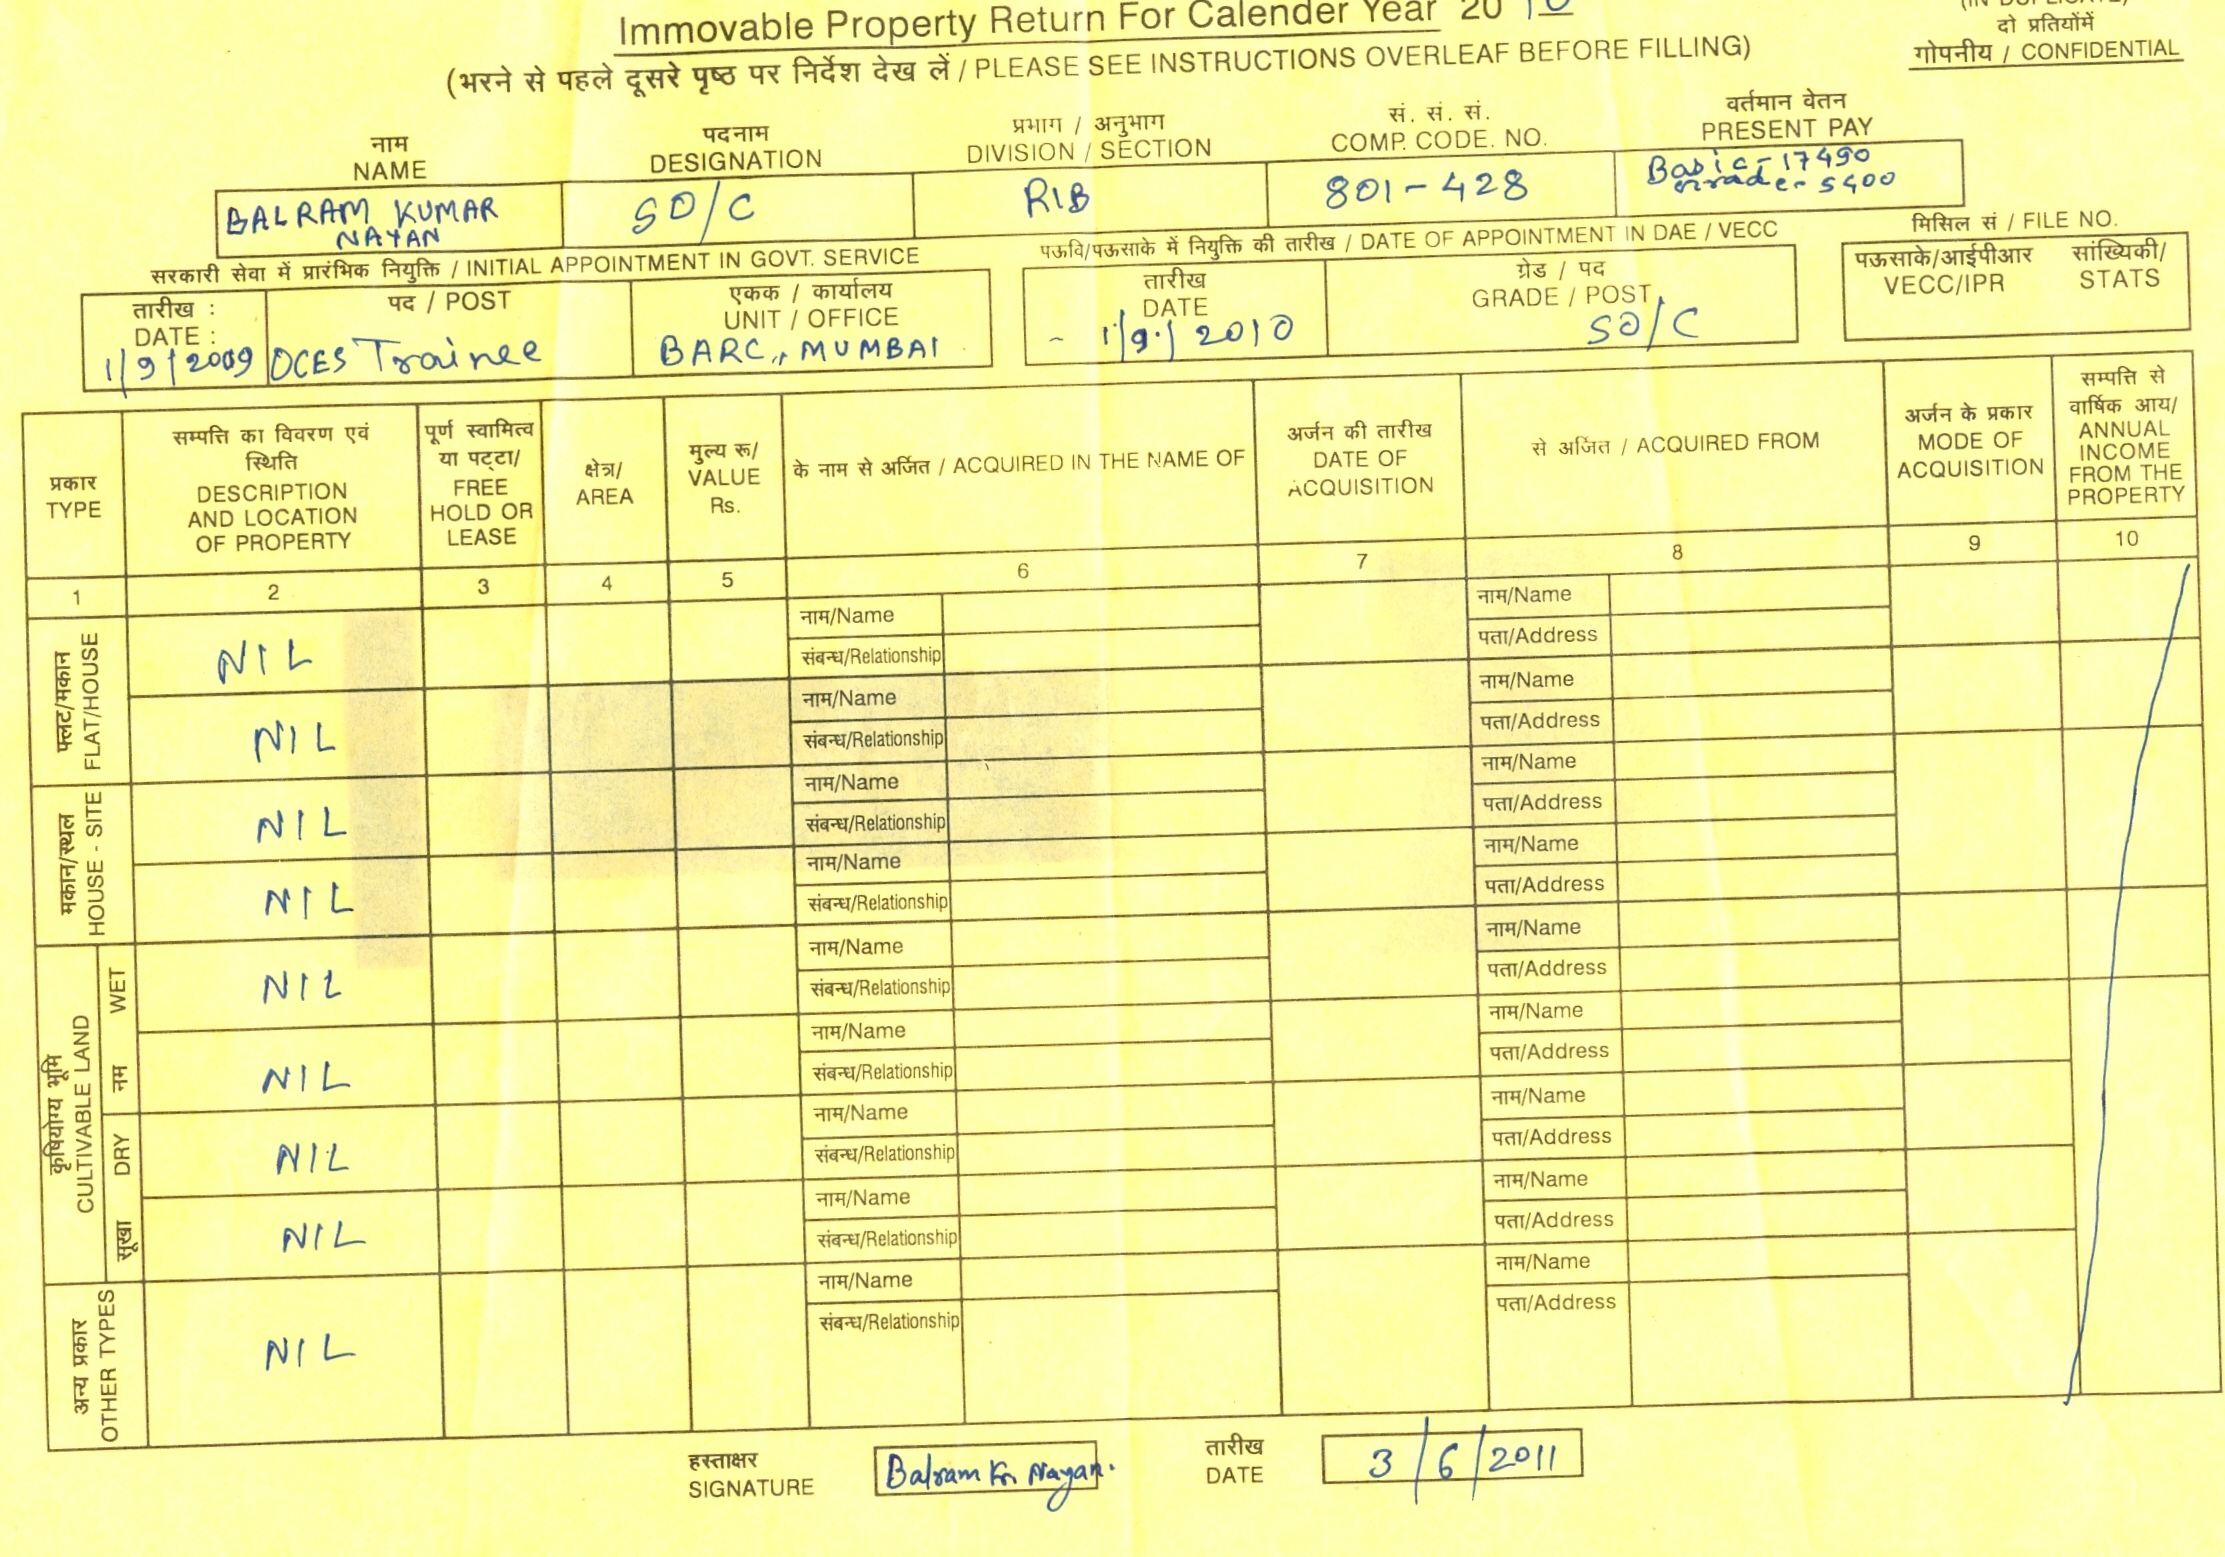 Immovable Property Return For Calender Year 20 10
(IN DUPLICATE)
दो प्रतियोंमें
गोपनीय / CONFIDENTIAL
(भरने से पहले दूसरे पृष्ठ पर निर्देश देख लें / PLEASE SEE INSTRUCTIONS OVERLEAF BEFORE FILLING)
नाम
NAME
BALRAM KUMAR
NAYAN
पदनाम
DESIGNATION
SO/C
प्रभाग / अनुभाग
DIVISION / SECTION
RIB
सं. सं. सं.
COMP. CODE. NO.
801-428
वर्तमान वेतन
PRESENT PAY
Basic - 17490
Grade - 5400
सरकारी सेवा में प्रारंभिक नियुक्ति / INITIAL APPOINTMENT IN GOVT. SERVICE
तारीख :
DATE :
1/9/2009
पद / POST
OCES Trainee
एकक / कार्यालय
UNIT / OFFICE
BARC, MUMBAI
पऊवि/पऊसाके में नियुक्ति की तारीख / DATE OF APPOINTMENT IN DAE / VECC
तारीख
DATE
- 1/9/2010
ग्रेड / पद
GRADE / POST
SO/C
मिसिल सं / FILE NO.
पऊसाके/आईपीआर
VECC/IPR
सांख्यिकी/
STATS
प्रकार
TYPE
सम्पत्ति का विवरण एवं
स्थिति
DESCRIPTION
AND LOCATION
OF PROPERTY
पूर्ण स्वामित्व
या पट्टा/
FREE
HOLD OR
LEASE
क्षेत्र/
AREA
मुल्य रू/
VALUE
Rs.
के नाम से अर्जित / ACQUIRED IN THE NAME OF
अर्जन की तारीख
DATE OF
ACQUISITION
से अर्जित / ACQUIRED FROM
अर्जन के प्रकार
MODE OF
ACQUISITION
सम्पत्ति से
वार्षिक आय/
ANNUAL
INCOME
FROM THE
PROPERTY
1 2 3 4 5 6 7 8 9 10
फ्लट/मकान
FLAT/HOUSE
NIL
नाम/Name
संबन्ध/Relationship
नाम/Name
पता/Address
NIL
नाम/Name
संबन्ध/Relationship
नाम/Name
पता/Address
मकान/स्थल
HOUSE - SITE
NIL
नाम/Name
संबन्ध/Relationship
नाम/Name
पता/Address
NIL
नाम/Name
संबन्ध/Relationship
नाम/Name
पता/Address
कृषियोग्य भूमि
CULTIVABLE LAND
नम
WET
NIL
नाम/Name
संबन्ध/Relationship
नाम/Name
पता/Address
NIL
नाम/Name
संबन्ध/Relationship
नाम/Name
पता/Address
सूखा
DRY
NIL
नाम/Name
संबन्ध/Relationship
नाम/Name
पता/Address
NIL
नाम/Name
संबन्ध/Relationship
नाम/Name
पता/Address
अन्य प्रकार
OTHER TYPES
NIL
नाम/Name
संबन्ध/Relationship
नाम/Name
पता/Address
हस्ताक्षर
SIGNATURE
Balram Kr. Nayan.
तारीख
DATE
3/6/2011